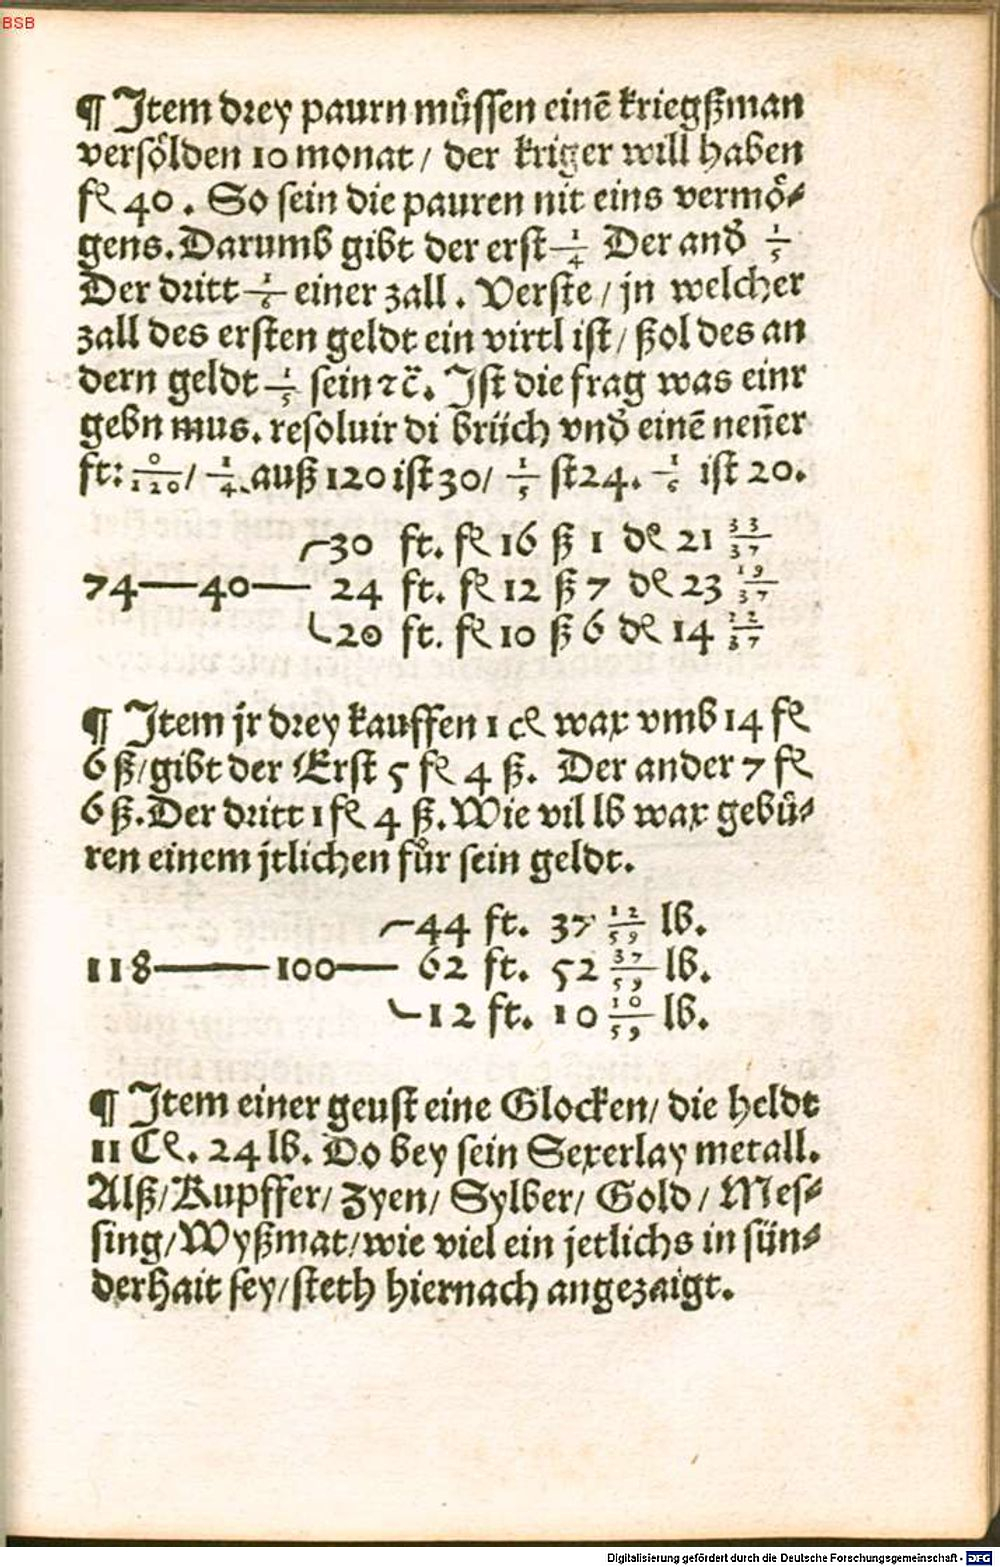 BSB
¶ Item drey paurn müssen einē kriegßman
versölden 10 monat / der kriger will haben
fl 40 . So sein die pauren nit eins vermö⸗
gens. Darumb gibt der erst 1/4 Der and̾ 1/5
Der dritt 1/6 einer zall . Verste / jn welcher
zall des ersten geldt ein virtl ist / ßol des an
dern geldt 1/5 sein ⁊c̈. Ist die frag was einr
gebn mus. resoluir di brüch vnd̾ einē nen̄er
ft: 0/120 / 1/4 auß 120 ist 30 / 1/5 st 24. 1/6 ist 20.
30 ft. fl 16 ß 1 dl 21 33/37
74 — 40 — 24 ft. fl 12 ß 7 dl 23 19/37
20 ft. fl 10 ß 6 dl 14 22/37
¶ Item jr drey kauffen 1 cl wax vmb 14 fl
6 ß / gibt der Erst 5 fl 4 ß. Der ander 7 fl
6 ß. Der dritt 1 fl 4 ß. Wie vil lb wax gebü⸗
ren einem jtlichen für sein geldt.
44 ft. 37 12/59 lb.
118 — 100 — 62 ft. 52 37/59 lb.
12 ft. 10 10/59 lb.
¶ Item einer geust eine Glocken / die heldt
11 Cl. 24 lb. Do bey sein Sexerlay metall.
Alß / Kupffer / Zyen / Sylber / Gold / Mes⸗
sing / Wyßmat / wie viel ein jetlichs in sün⸗
derhait sey / steth hiernach angezaigt.
Digitalisierung gefördert durch die Deutsche Forschungsgemeinschaft - DFG